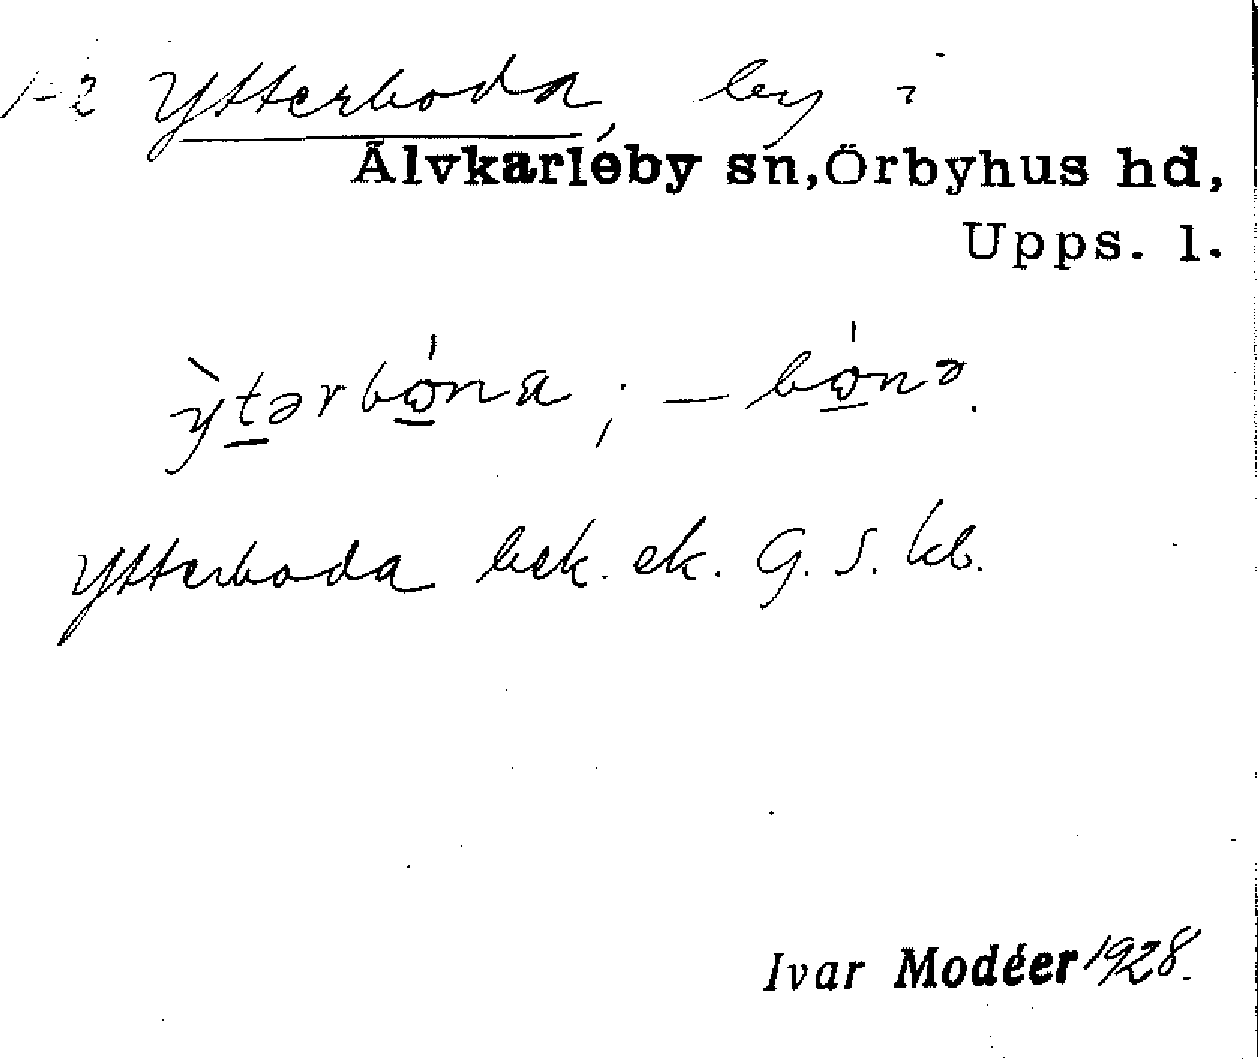 1-2 Ytterboda by i
Älvkarleby sn, Örbyhus hd,
Upps. l.
ỳtərbó̠na ; – bó̠nə.
Ytterboda bek. ek. G. S. kb.
Ivar Modéer 1928.